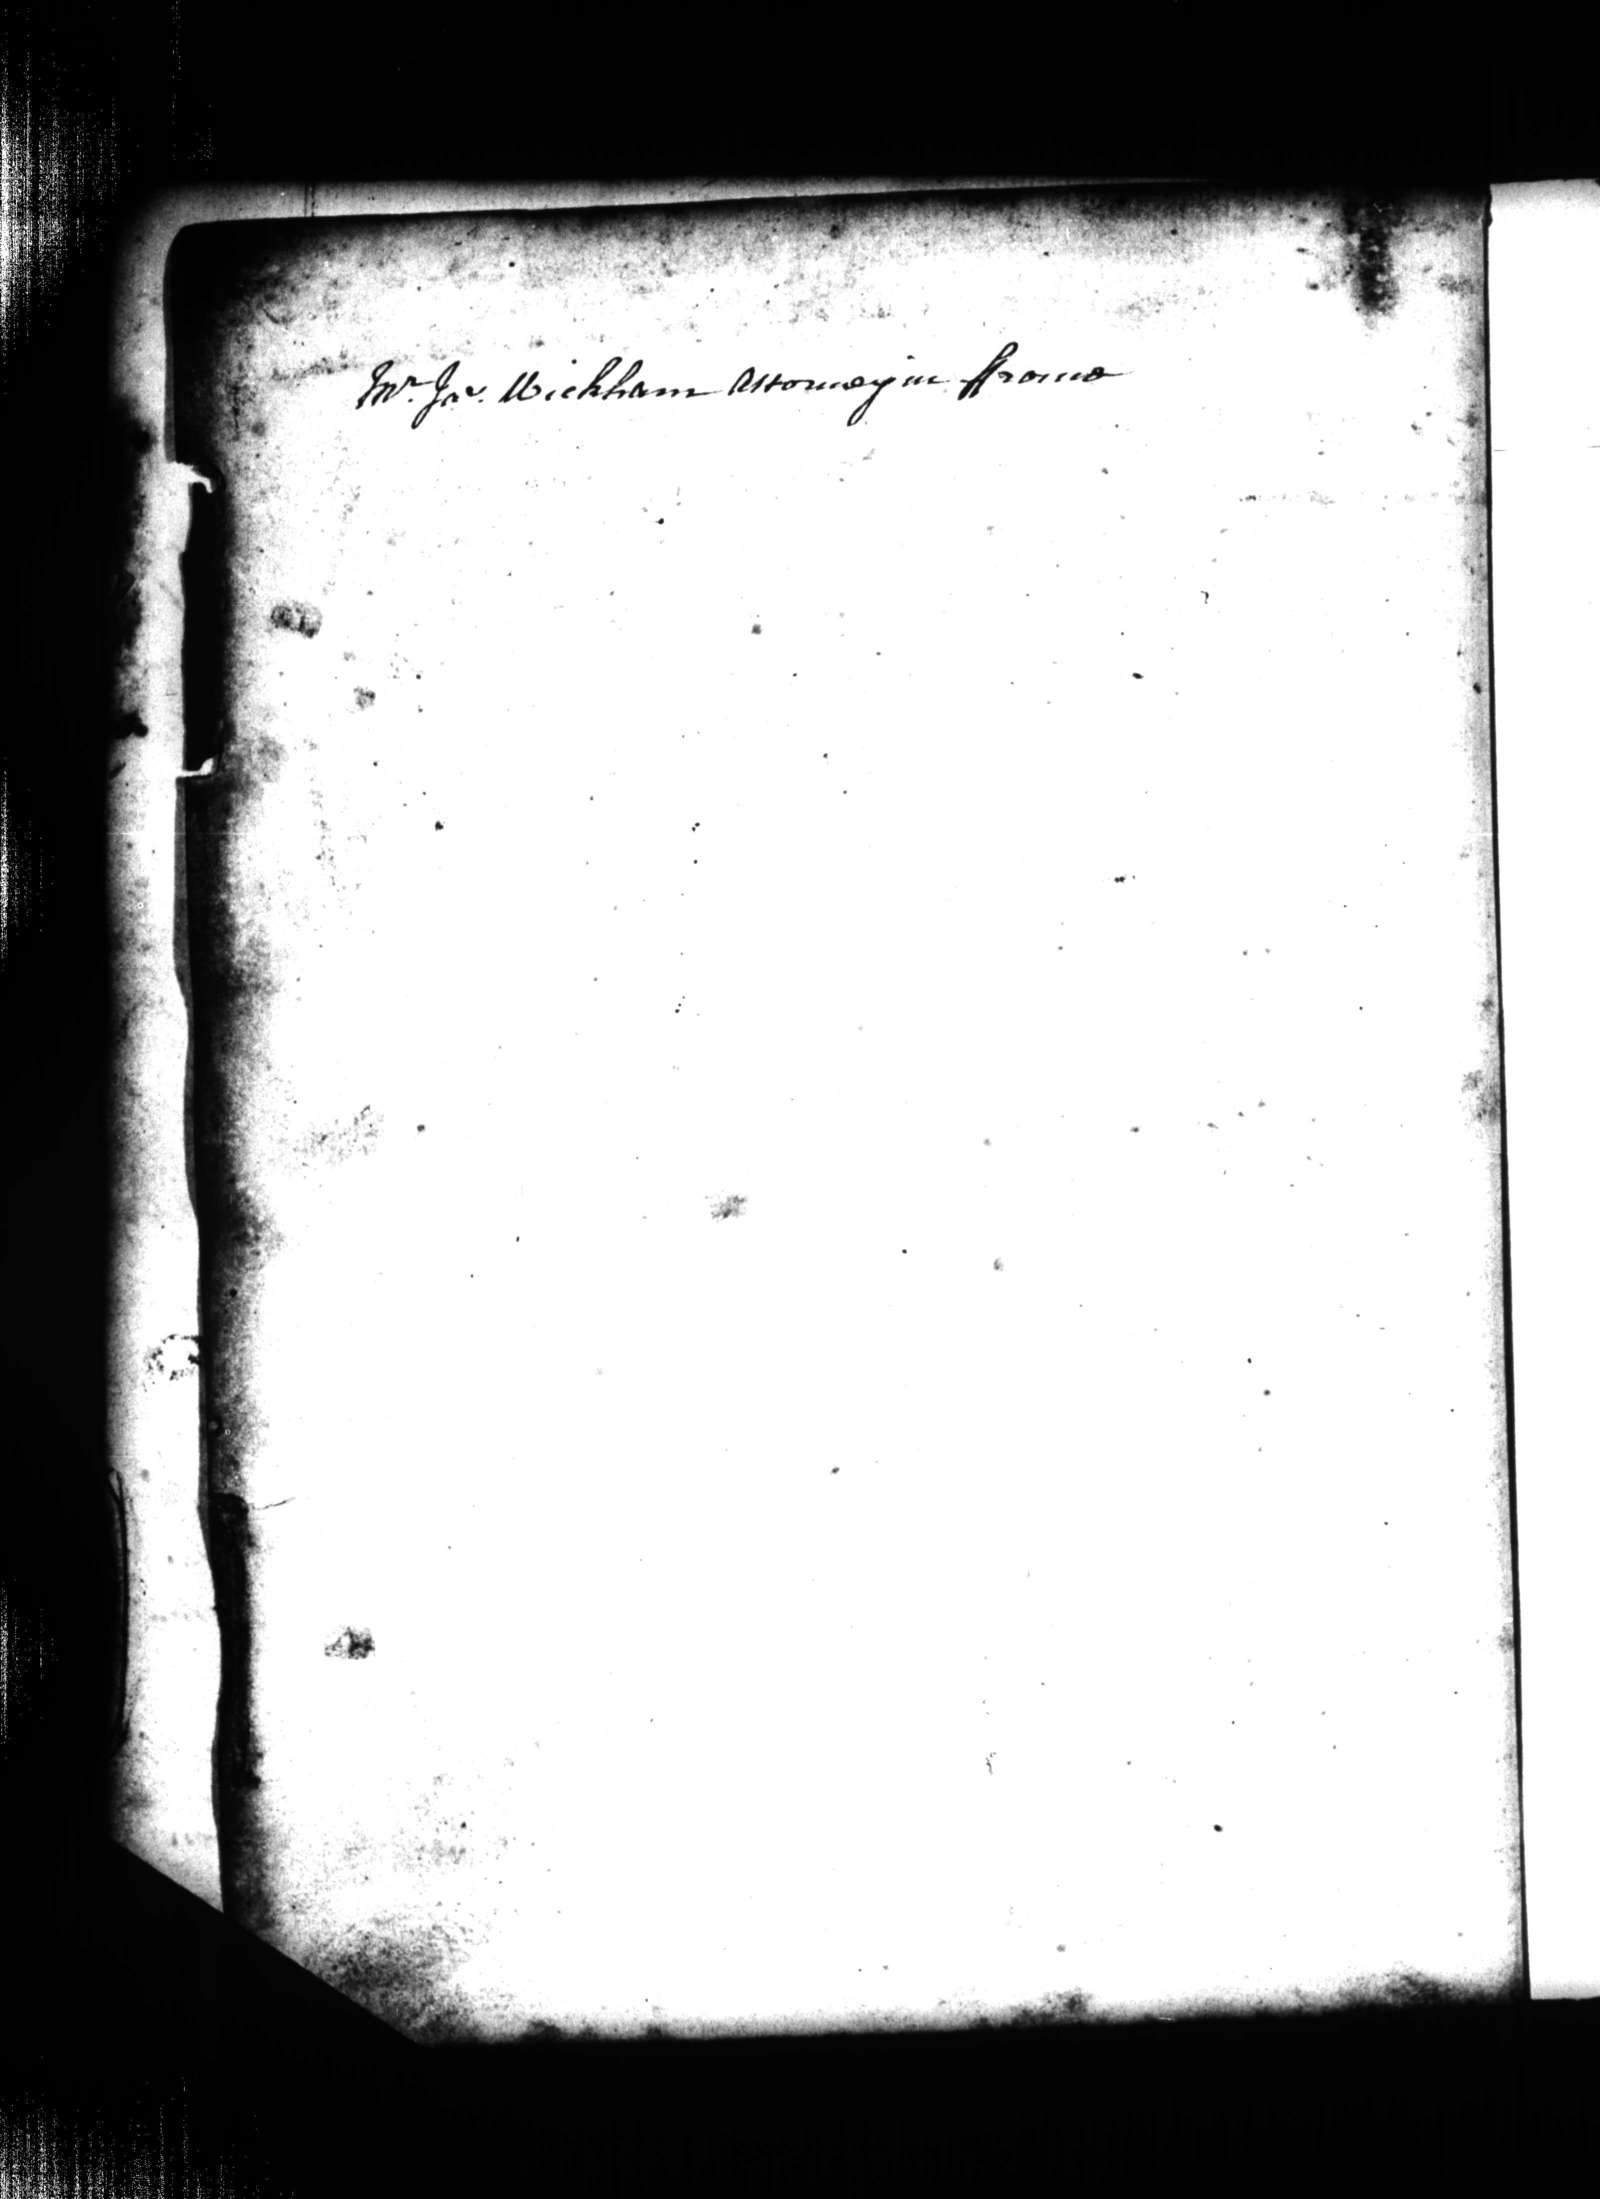 Mr. Jas. Wickham Attorney in ffrome